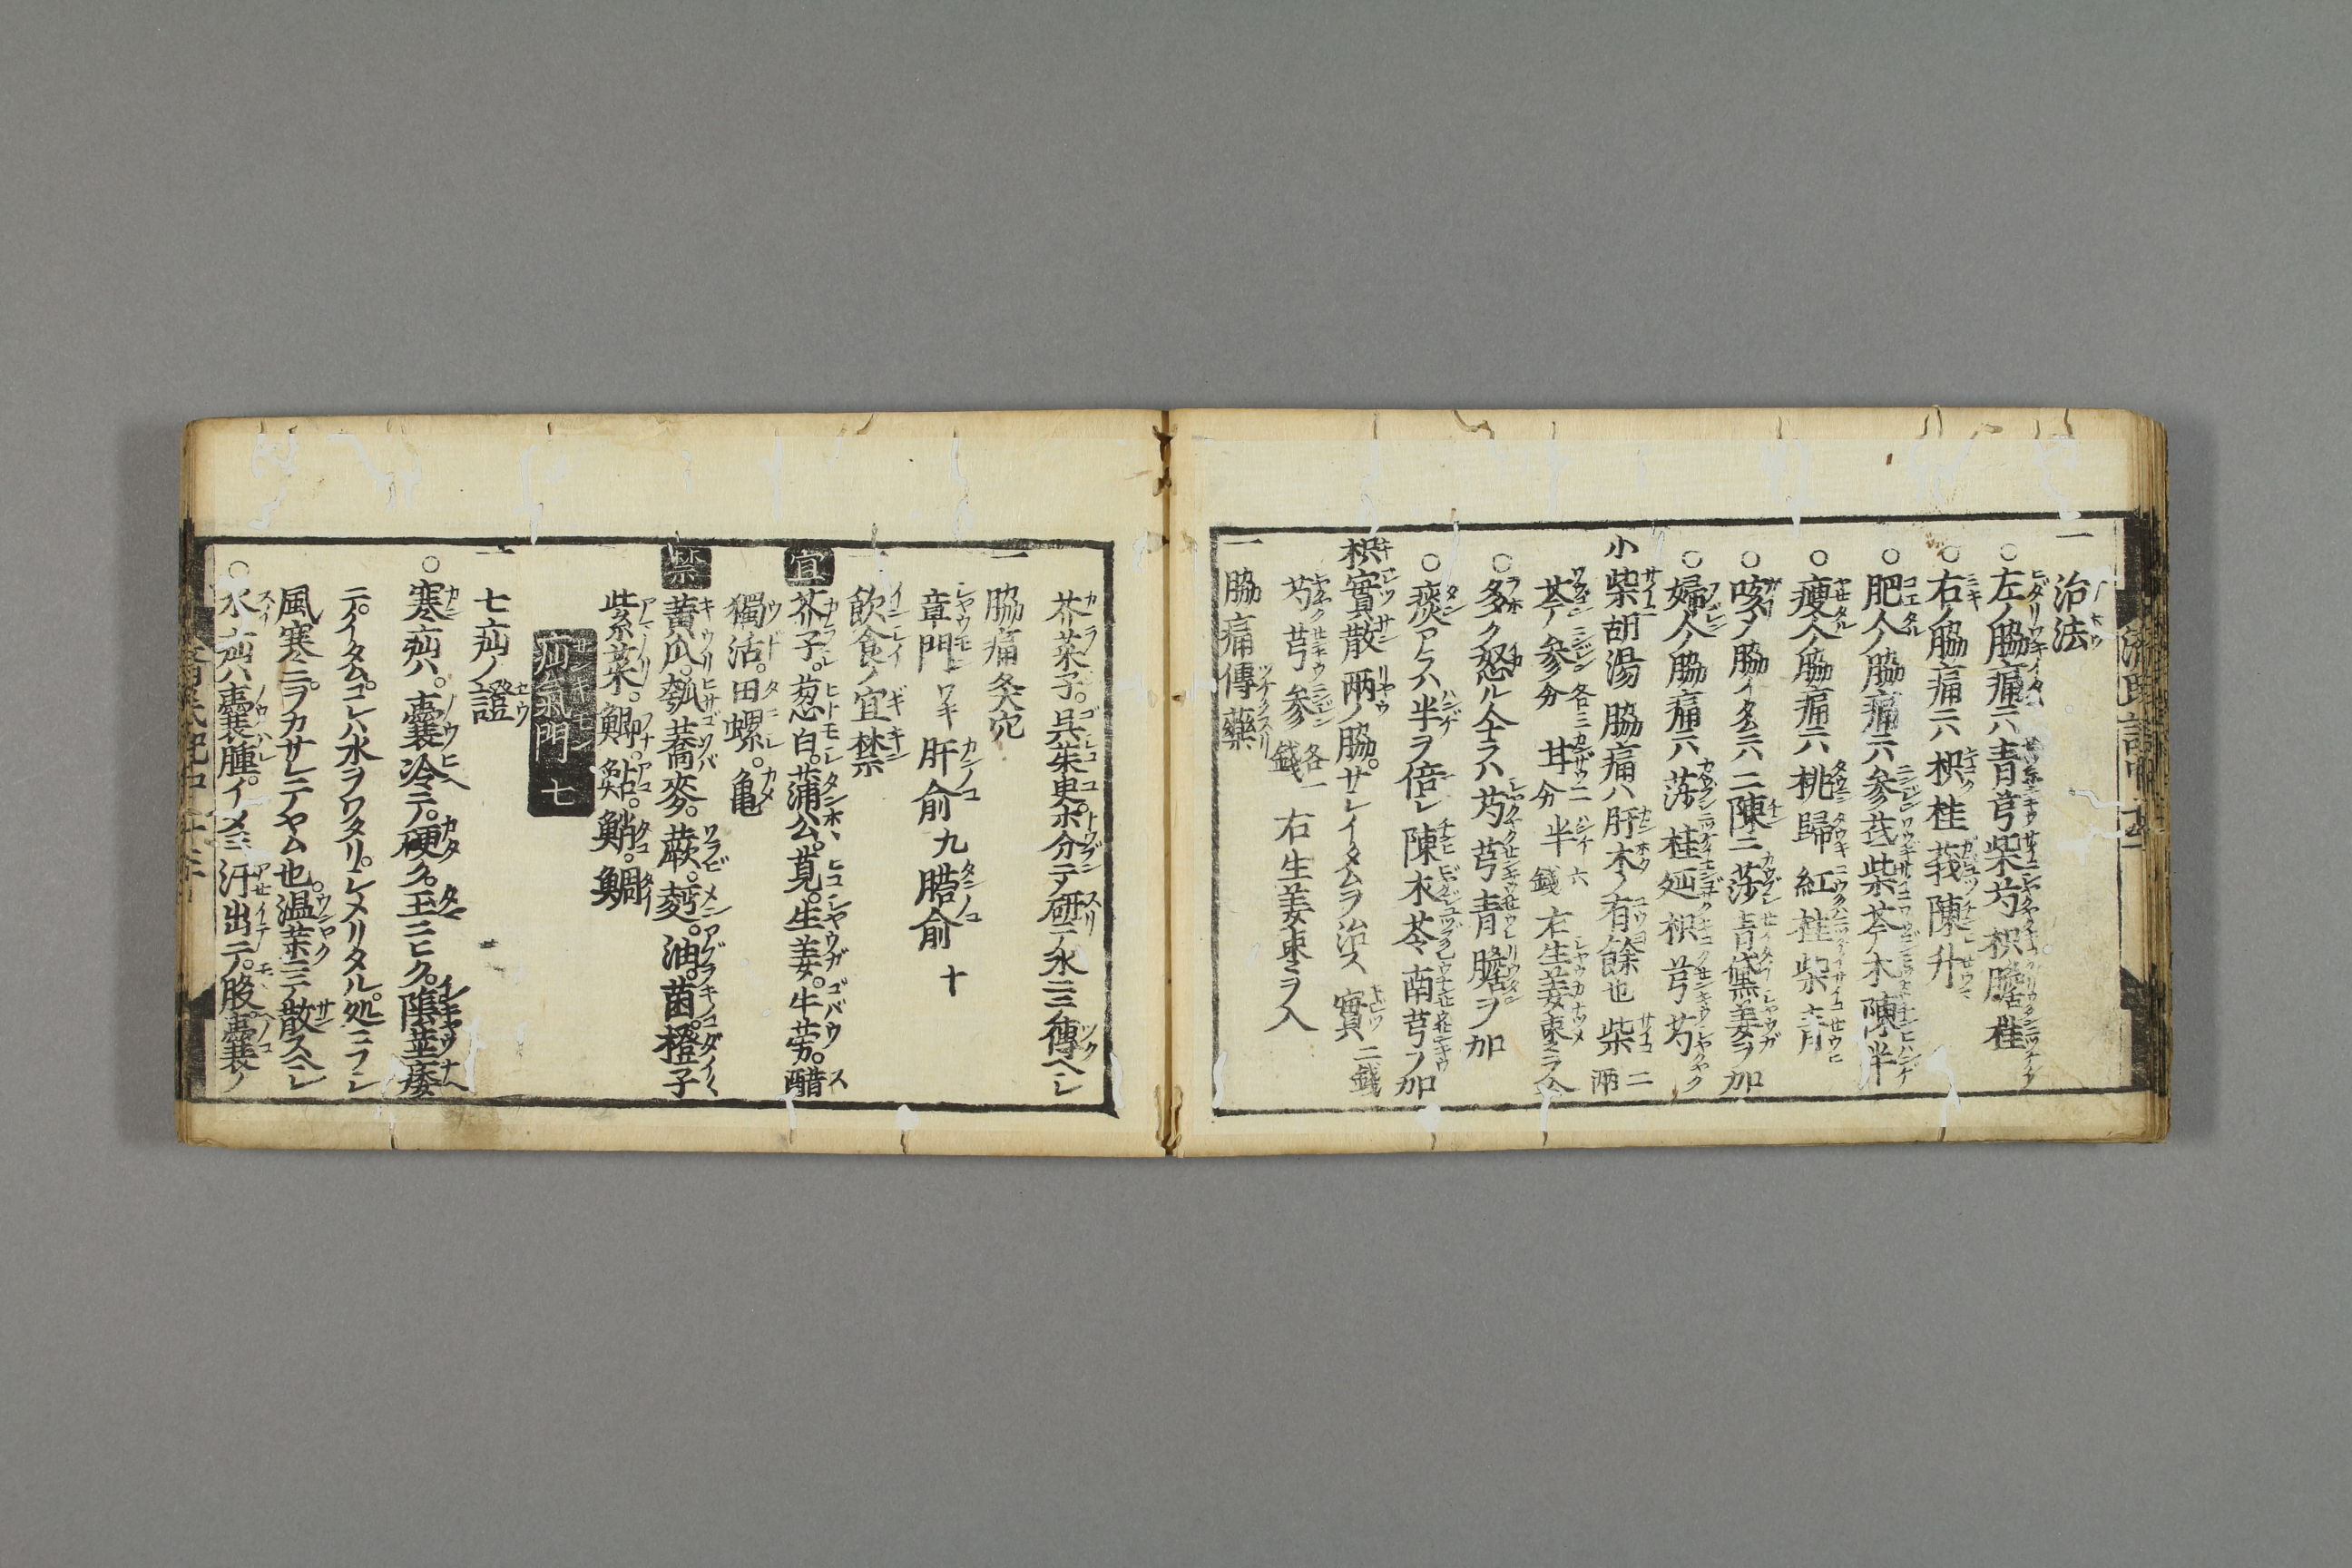 一 治法
○左ノ脇痛ニハ青芎柴芍枳膽桂
○右ノ脇痛ニハ枳桂莪陳升
○肥人ノ脇痛ニハ参茋柴芩木陳半
○瘦人ノ脇痛ニハ桃歸紅桂柴青
○咳メ脇イタムニハ二陳ニ莎青黛姜ヲ加
○婦人ノ脇痛ニハ莎桂
小柴胡湯 脇痛ハ肝木ノ有餘也 柴二兩
芩参各三分 甘二分 半六錢 右生姜棗ヲ入
○多ク怒ル人ニハ芍芎青膽ヲ加
○痰アラハ半ヲ倍シ陳木苓南芎ヲ加
枳實散 兩ノ脇。サシイタムヲ治ス 實二錢
芍芎参各一錢 右生姜棗ヲ入
一 脇痛傳藥
芥菜子。呉茱萸。等分ニテ研テ水ニテ傳ヘシ
一 脇痛灸穴
章門 肝俞九 膽俞十
一 飲食ノ宜禁
宜 芥子。葱白。蒲公。莧。生姜。牛蒡。醋
獨活。田螺。亀
禁 黄瓜。瓠。蕎麥。蕨。麪。油。菌。橙子
紫菜。鯽。鮎。鮹。鯛
疝氣門 七
一 七疝ノ證
○寒疝ハ。囊冷テ。硬ク。玉ニヒク。陰莖痿
テ。イタム。コレハ水ヲワタリ。シメリタル。処ニフシ
風寒ニ。ヲカサレテヤム也。温藥ニテ散スヘシ
○水疝ハ囊腫。イメミ汗出テ。股。囊ノ